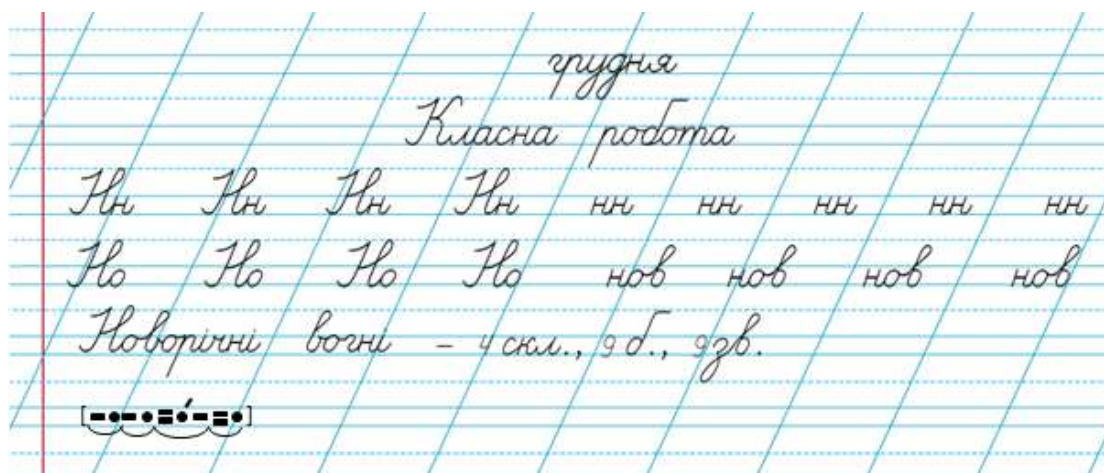 грудня
Класна робота
Нн Нн Нн Нн нн нн нн нн нн
Но Но Но Но нов нов нов нов
Новорічні вогні – 4 скл., 9 б., 9 зв.
[–•–•=•́–=•]